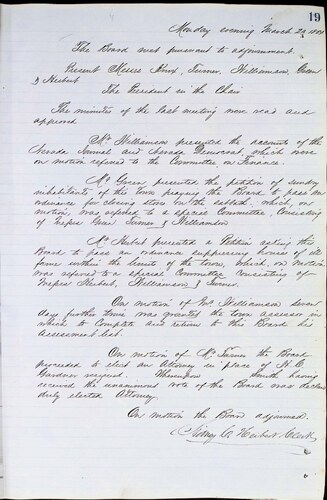 19
Monday evening March
The Board met pursuant to adjournment.
Present Messrs Knox, Turner, Williamson, Green
& Herbert
The President in the Chair
The minutes of the last meeting were read and
approved
Mr Williamson presented the accounts of the
Nevada Journal and Nevada Democrat, which were
on motion referred to the Committee on Finance.
Mr Green presented the petition of sundry
inhabitants of this town praying the Board to pass an
ordinance for closing stores on the sabbath, which, on
motion, was referred to a special Committee, Consisting
of Messrs Green Turner & Williamson
Mr Herbert presented a Petition asking this
Board to pass an ordinance suppressing houses of ill
fame within the limits of the town, which on Motion
was referred to a special Committee consisting of
Messrs Herbert, Williamson & Turner.
On motion of Mr Williamson seven
days further time was granted the town assessor in
which to complete and return to this Board his
assessment list.
On motion of Mr Turner the Board
proceeded to elect an Attorney in place of H. C.
Gardner resigned. Whereupon Smith having
received the unanimous vote of the Board was declared
duly elected Attorney.
On motion the Board adjourned.
Herbert Clerk